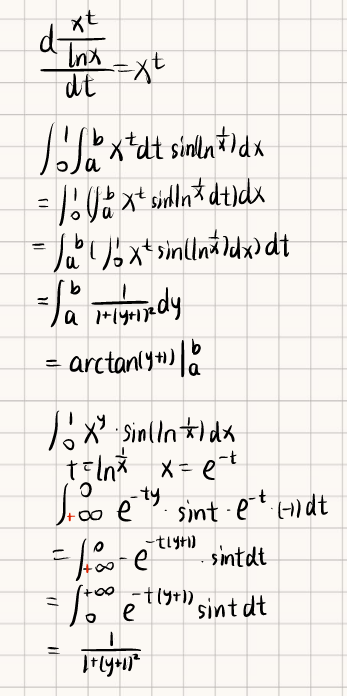 d(x^t/lnx)/dt = x^t
∫_0^1 ∫_a^b x^t dt sin(ln 1/x) dx
= ∫_0^1 (∫_a^b x^t sin(ln 1/x dt) dx
= ∫_a^b (∫_0^1 x^t sin(ln 1/x) dx) dt
= ∫_a^b 1/(1+(y+1)^2) dy
= arctan(y+1) |_a^b
∫_0^1 x^y · sin(ln 1/x) dx
t = ln 1/x x = e^{-t}
∫_{+∞}^0 e^{-ty} · sint · e^{-t} · (-1) dt
= ∫_{+∞}^0 - e^{-t(y+1)} · sint dt
= ∫_0^{+∞} e^{-t(y+1)} sint dt
= 1/(1+(y+1)^2)